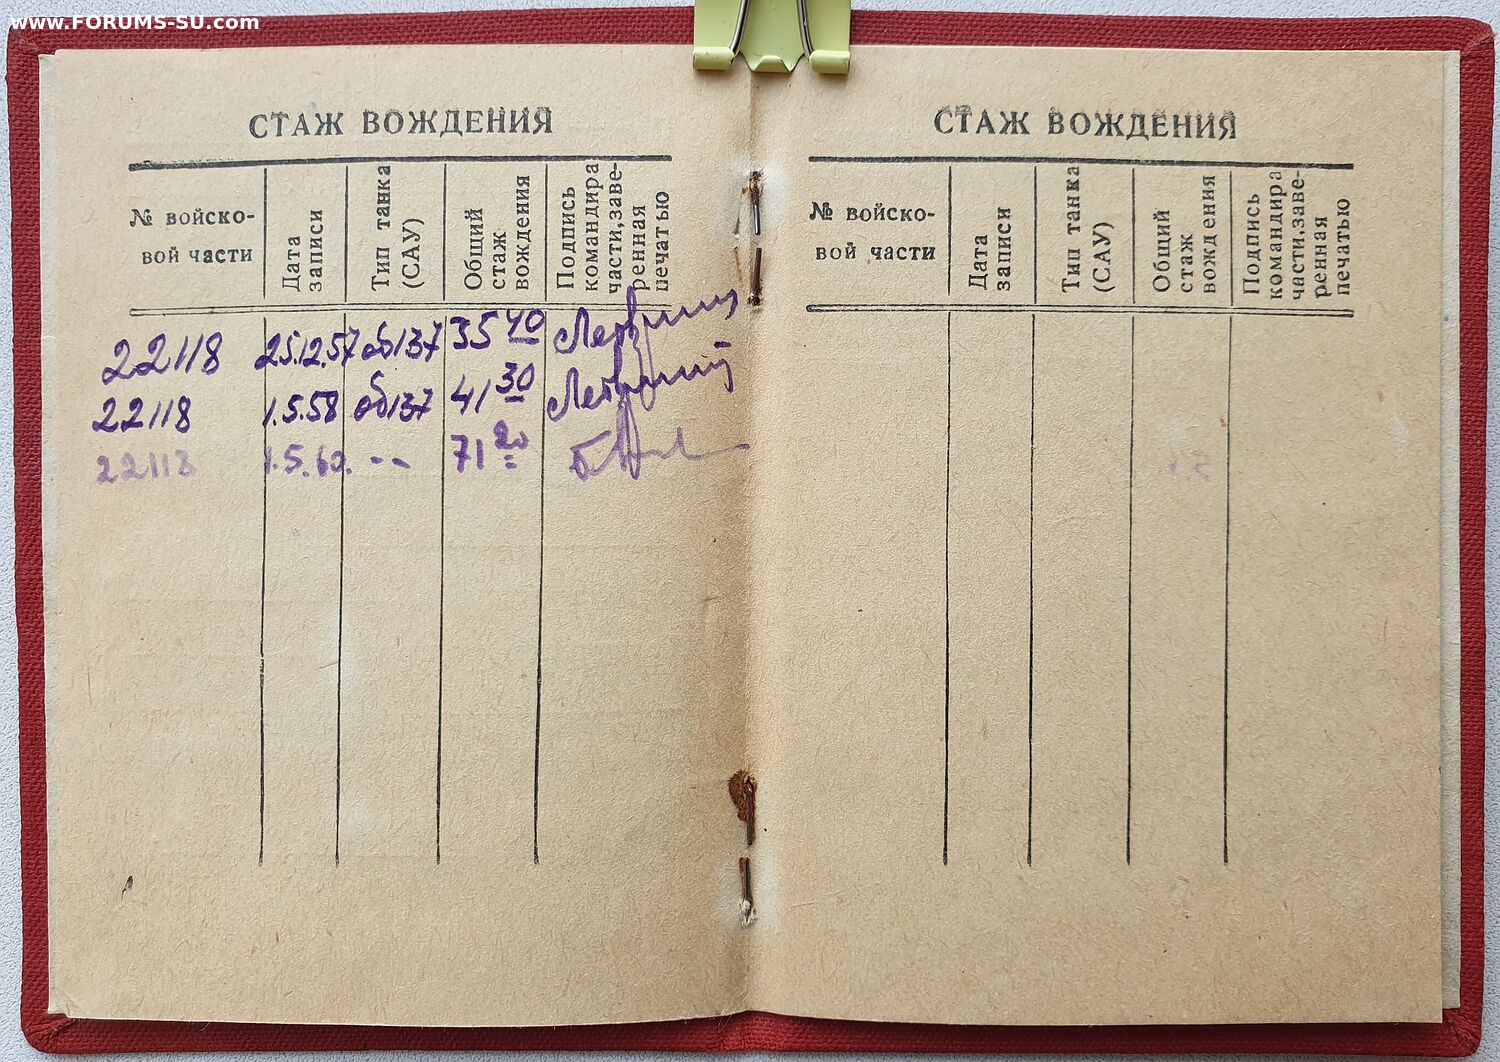 www.FORUMS-SU.com
СТАЖ ВОЖДЕНИЯ
№ войско-
вой части
Дата
записи
Тип танка
(САУ)
Общий
стаж
вождения
Подпись
командира
части, заве-
ренная
печатью
22118 25.12.57 об137 35 40
22118 1.5.58 об137 41 30
22118 1.5.60. -- 71 20
СТАЖ ВОЖДЕНИЯ
№ войско-
вой части
Дата
записи
Тип танка
(САУ)
Общий
стаж
вождения
Подпись
командира
части, заве-
ренная
печатью